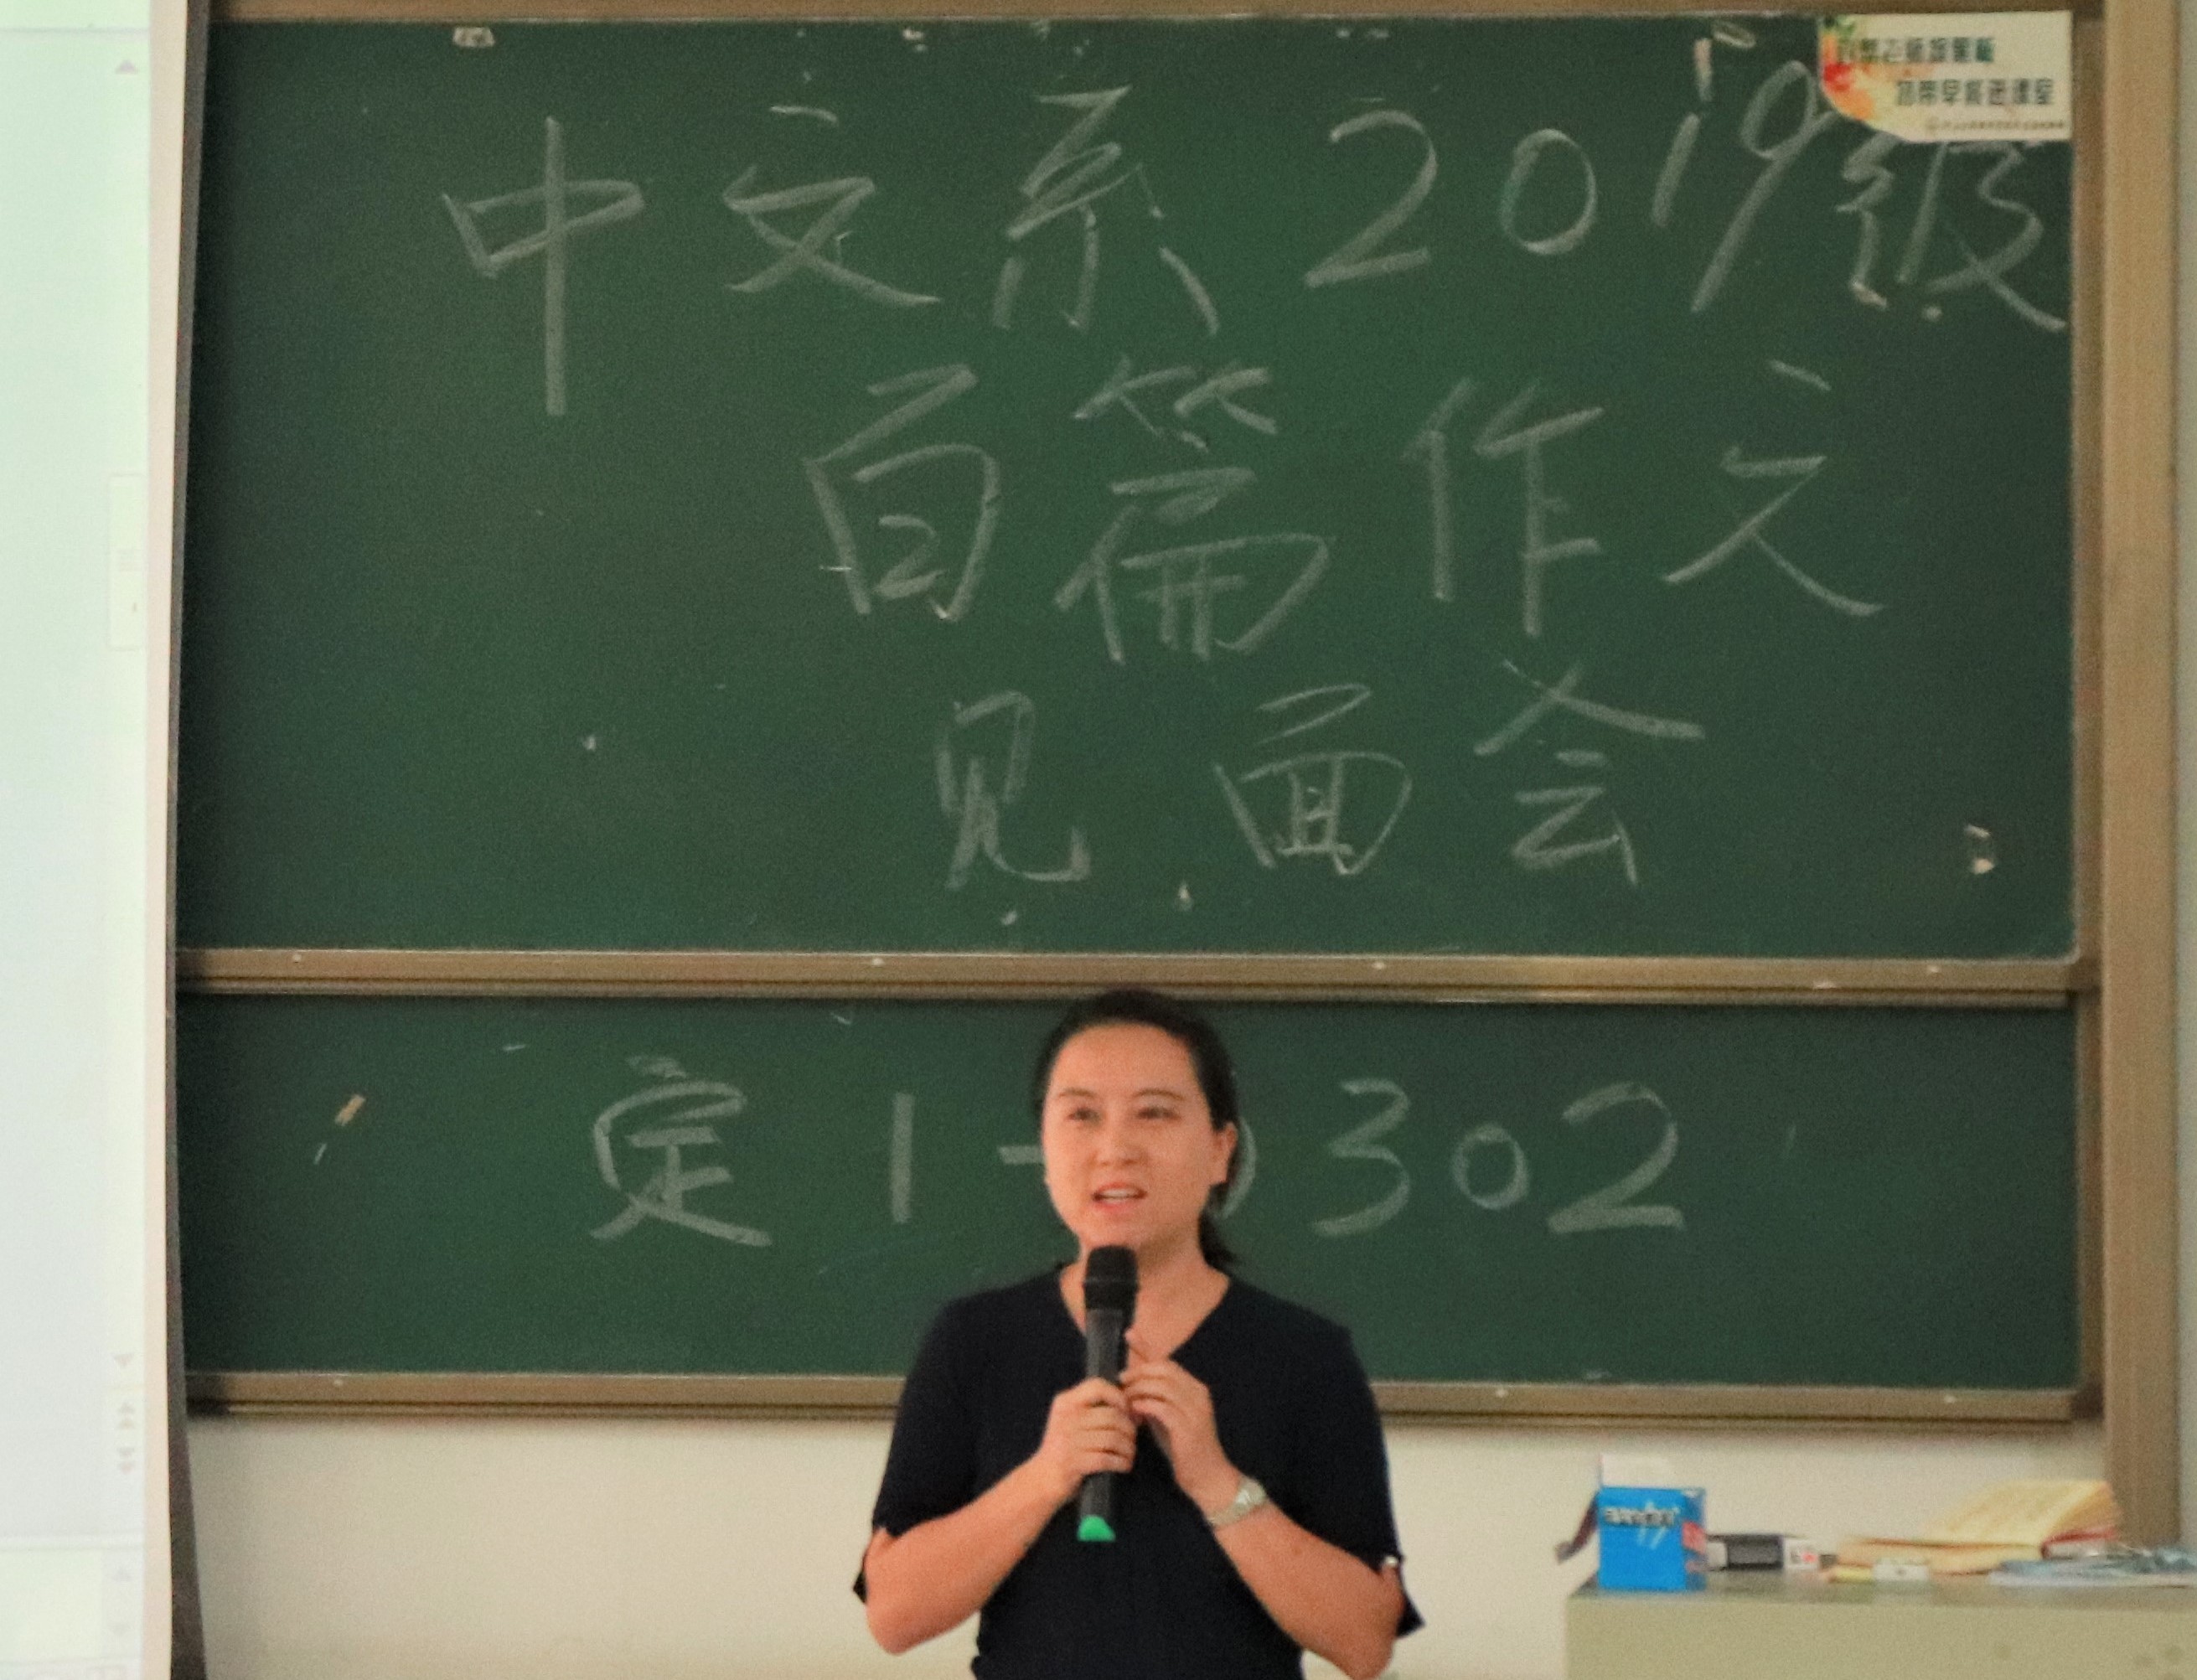 中文系2019级
百篇作文
见面会
定1-0302